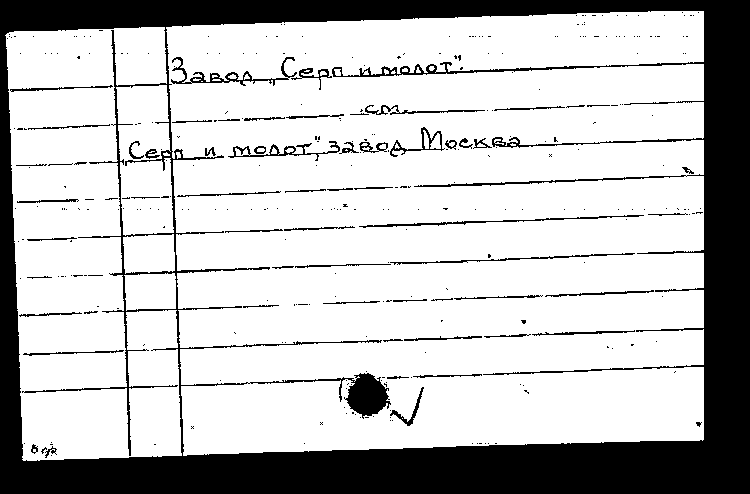 Завод „Серп и молот".
см.
„Серп и молот", завод Москва